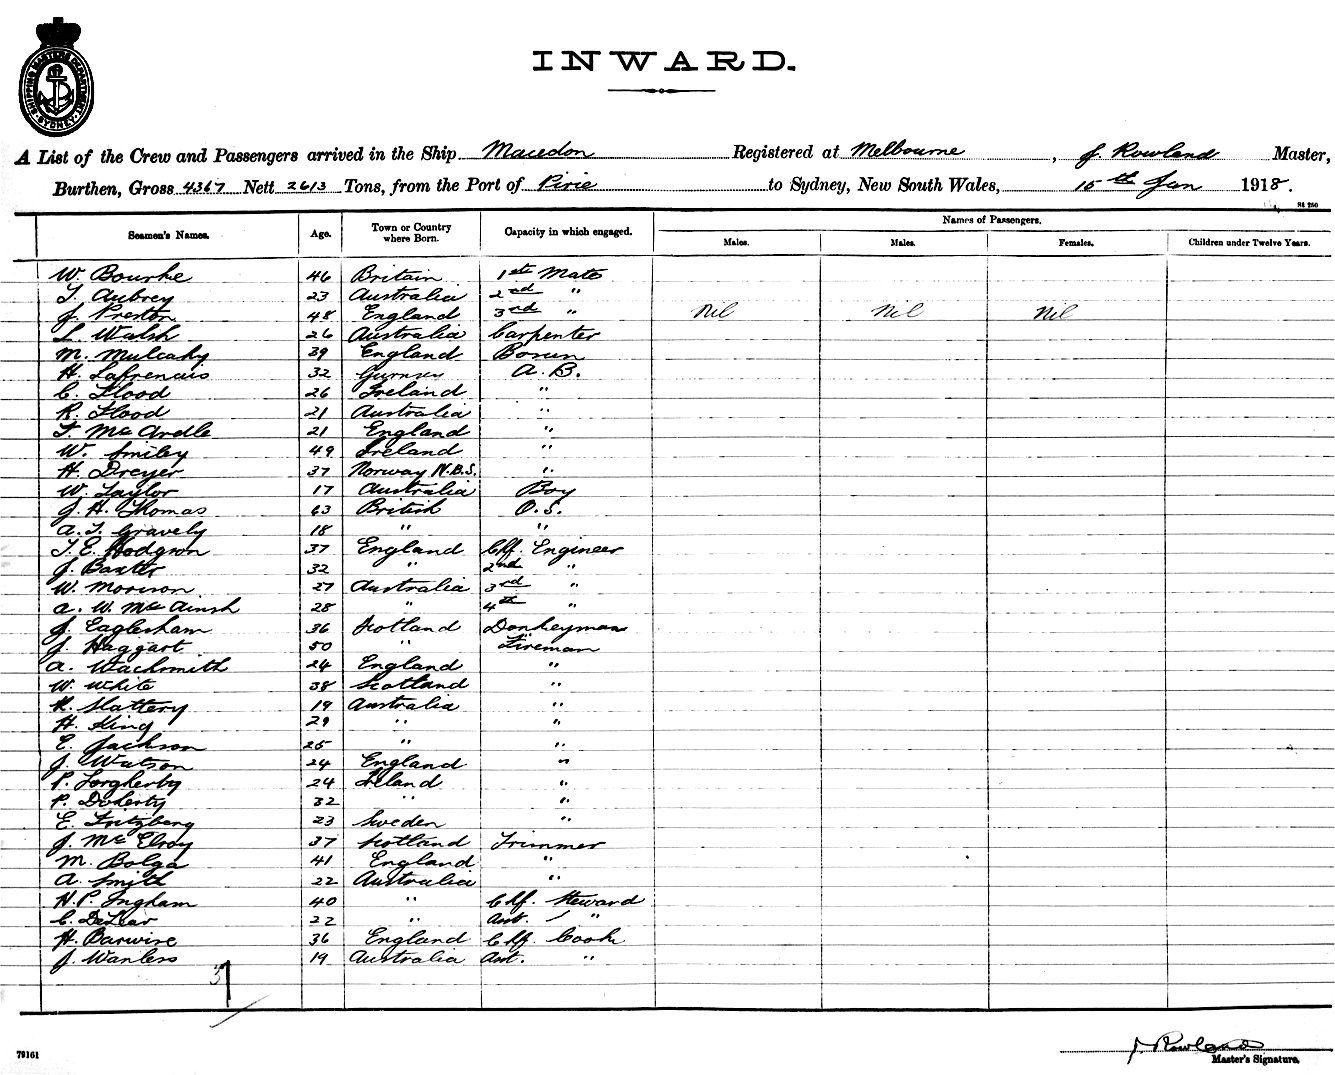 SHIPPING MASTERS DEPARTMENT SYDNEY
INWARD.
A List of the Crew and Passengers arrived in the Ship Macedon Registered at Melbourne, J. Rowland Master,
Burthen, Gross 4367 Nett 2613 Tons, from the Port of Pirie to Sydney, New South Wales, 15th Jan 1918.
St 250
Seamen's Names. Age. Town or Country where Born. Capacity in which engaged. Names of Passengers.
Males. Males. Females. Children under Twelve Years.
W. Bourke 46 Britain 1st Mate
T. Aubrey 23 Australia 2nd "
J. Preston 48 England 3rd " Nil Nil Nil
L. Walsh 26 Australia Carpenter
M. Mulcahy 39 England Bosun
H. Lafrenais 32 Gurnsey A.B.
C. Flood 26 Ireland "
R. Flood 21 Australia "
T. McArdle 21 England "
W. Smiley 49 Ireland "
H. Dreyer 37 Norway N.B.S. "
W. Taylor 17 Australia Boy
J. H. Thomas 63 British O.S.
A. T. Gravely 18 " "
T. E. Hodgson 37 England Chf. Engineer
J. Baxter 32 " 2nd "
W. Morison 27 Australia 3rd "
A. W. McAinsh 28 " 4th "
J. Eaglesham 36 Scotland Donkeyman
J. Haggart 50 " Fireman
A. Wachsmith 24 England "
W. White 38 Scotland "
R. Slattery 19 Australia "
H. King 29 " "
E. Jackson 25 " "
J. Watson 24 England "
P. Lorgherby 24 Ireland "
P. Doherty 32 " "
E. Fritzberg 23 Sweden "
J. McElroy 37 Scotland Trimmer
M. Bolga 41 England "
A. Smith 22 Australia "
H. P. Ingham 40 " Chf. Steward
C. 22 " Asst. "
H. Barwise 36 England Chf. Cook
J. Wanless 19 Australia Asst. "
J. Rowland
79161
Master's Signature.